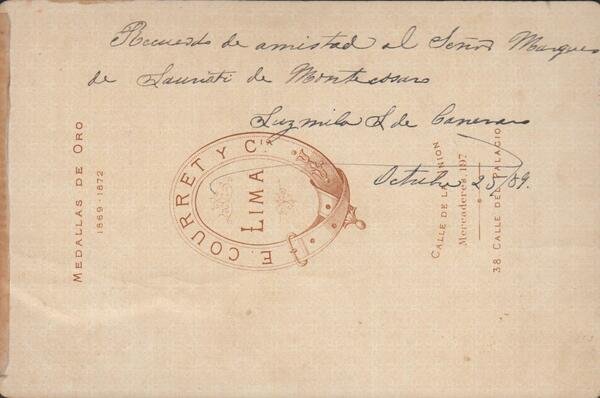 Recuerdo de amistad al Señor Marques
de Lauriati de Montecosaro
Luzmila S de Canevaro
Octubre 25/89.
MEDALLAS DE ORO
1869-1872
E. COURRET Y Cia
LIMA
CALLE DE LA UNION
Mercaderes, 197
38 CALLE DEL PALACIO